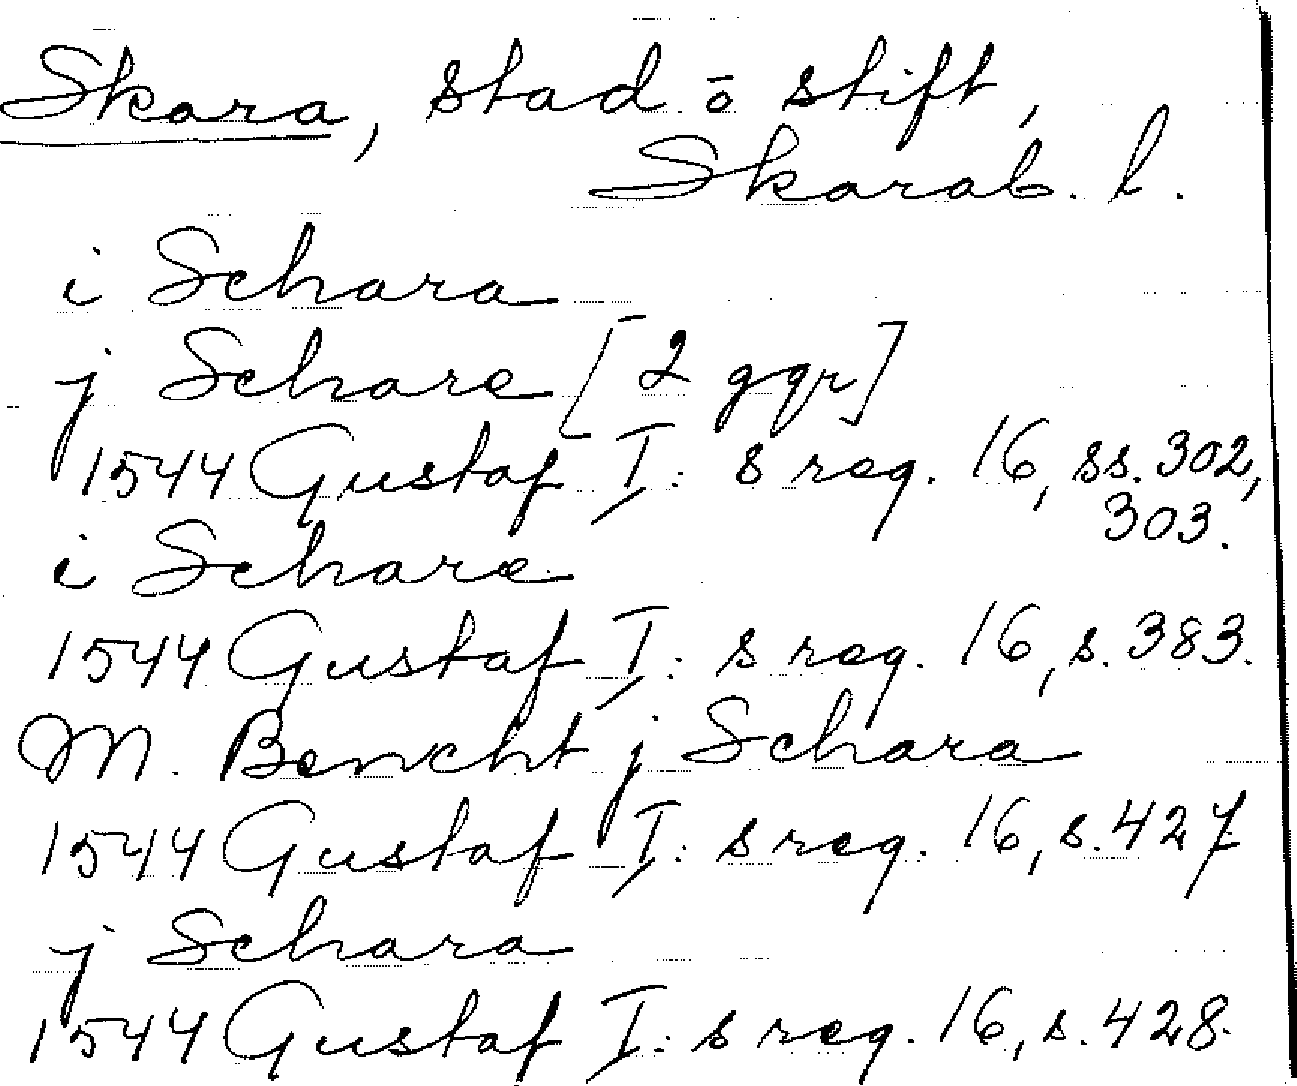 Skara, stad o stift,
Skarab. l.
i Schara
j Schare [2 ggr]
1544 Gustaf I:s reg. 16, ss. 302,
303.
i Schare
1544 Gustaf I:s reg. 16, s. 383.
M. Bencht j Schara
1544 Gustaf I:s reg. 16, s. 427
j Schara
1544 Gustaf I:s reg. 16, s. 428.